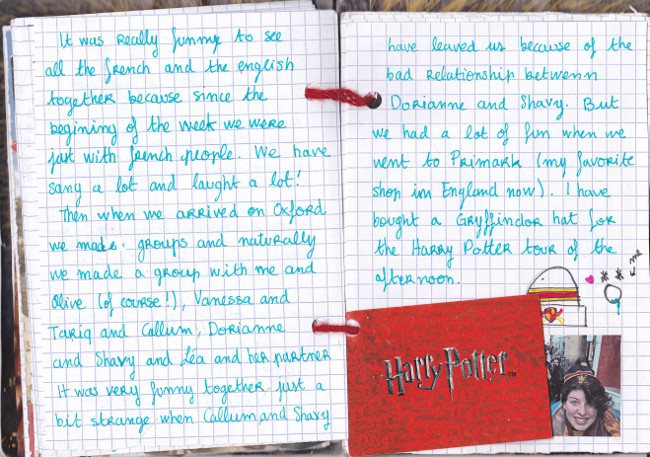 It was really funny to see
all the french and the english
together because since the
begining of the week we were
just with french people. We have
sang a lot and laught a lot!
Then when we arrived on Oxford
we made groups and naturally
we made a group with me and
Olive (of course!), Vanessa and
Tariq and Callum, Dorianne
and Shavy and Léa and her partner
It was very funny together just a
bit strange when Callum and Shavy
have leaved us because of the
bad relationship betwenn
Dorianne and Shavy. But
we had a lot of fun when we
went to Primark (my favorite
shop in England now). I have
bought a Gryffindor hat for
the Harry Potter tour of the
afternoon.
me
Harry Potter™